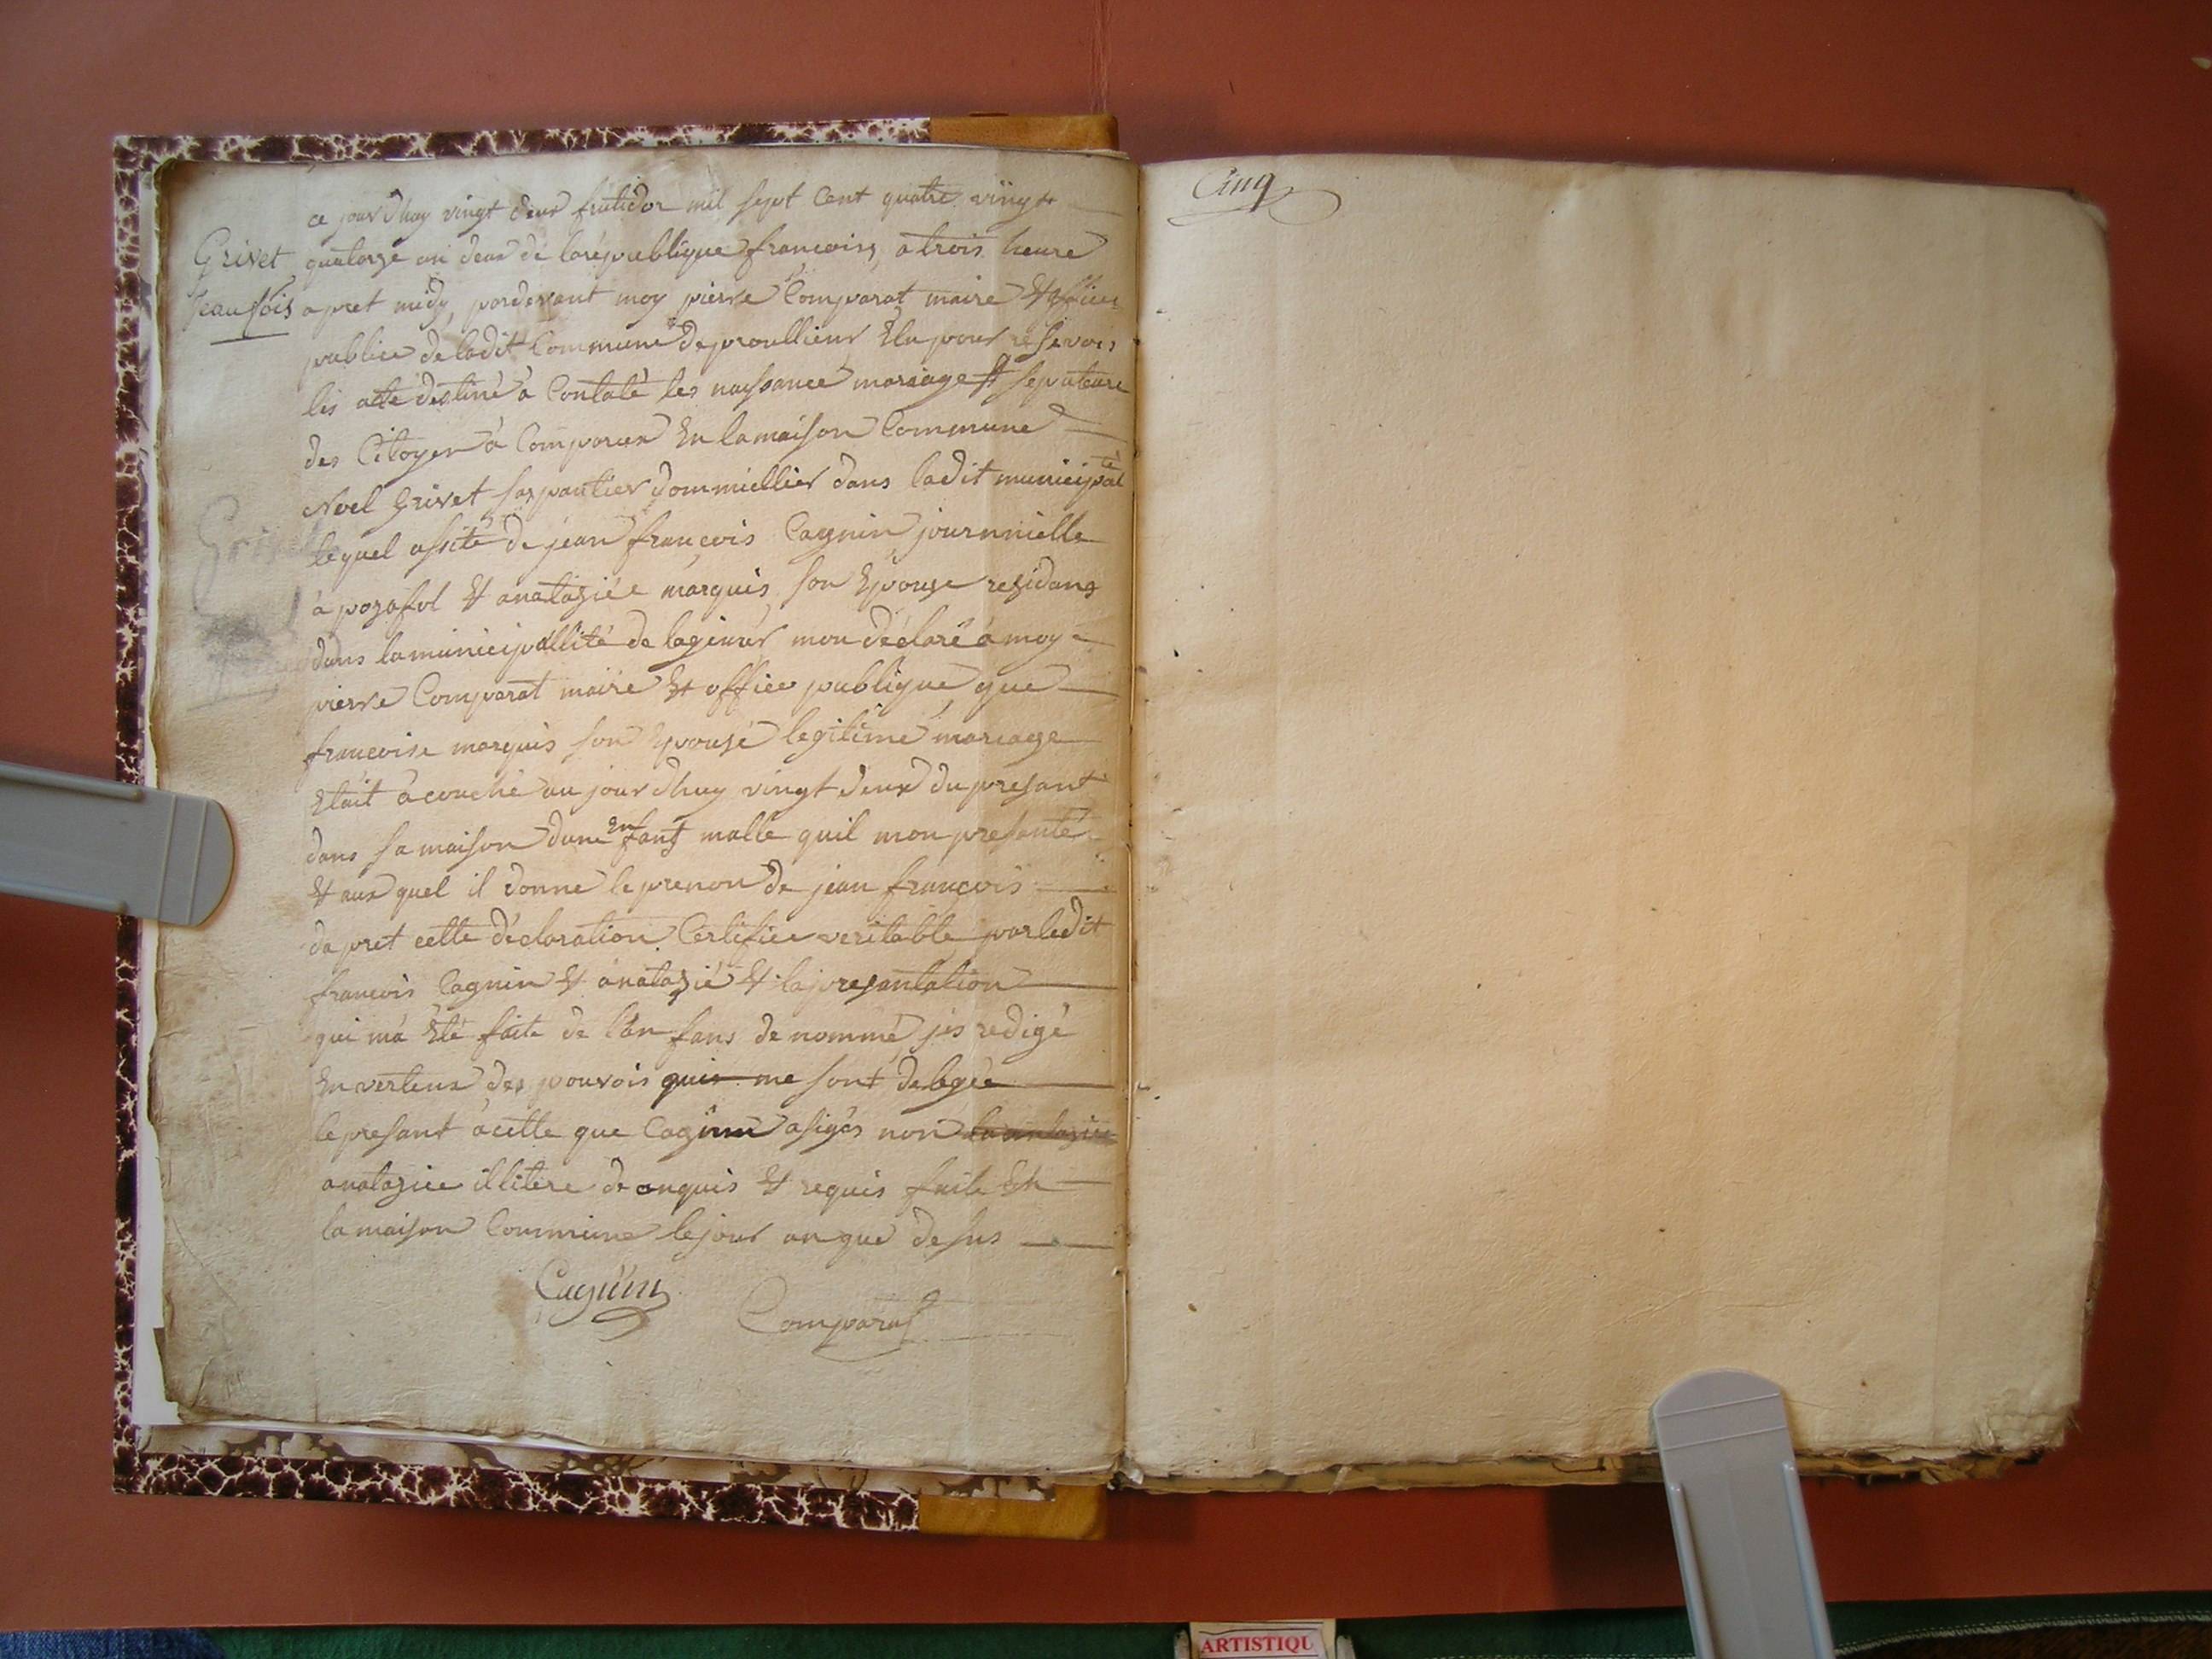 ce jour dhuy vingt deux frutidor mil sept Cent quatre vingt
Grivet
quatorze an deux de la republique francoise, a trois heure
Jean fois
apret midy, pardevant moy pierre Comparat maire et officier
publice de ladit Commune de proullieur Elu pour resevoir
les acte destiné a Contaté les naissance mariage et sepulture
des Citoyen à Comparux En la maison Commune
Noel Grivet sarpantier dommiellier dans ladit municipalté
lequel assité de jean françois Cagnin journnielle
à posafol et anatazië marquis son Epouse residans
dans la municipallité de lagnieur mon déclaré à moy
pierre Comparat maire et office publique, que
francoise marquis son Epouse legitime mariage
Etait acouché aujourdhuy vingt deux du presant
dans sa maison dune Enfant malle quil mon presanté
et aux quel il donne le prenon de jean françois
dapret cette déclaration Certifiee veritable par ledit
francois Cagnin et anatazié et la presantation
qui ma Eté faite de lan fans denommé jes redigé
En verteux des pouvois qui me sont delegée
le presant acette que Cagnin a signés non
anatazië illitere de anquis et requis faite En
la maison Commune le jour an que desus
Cagnin
Comparat
Cinq
Grivet
ARTISTIQU